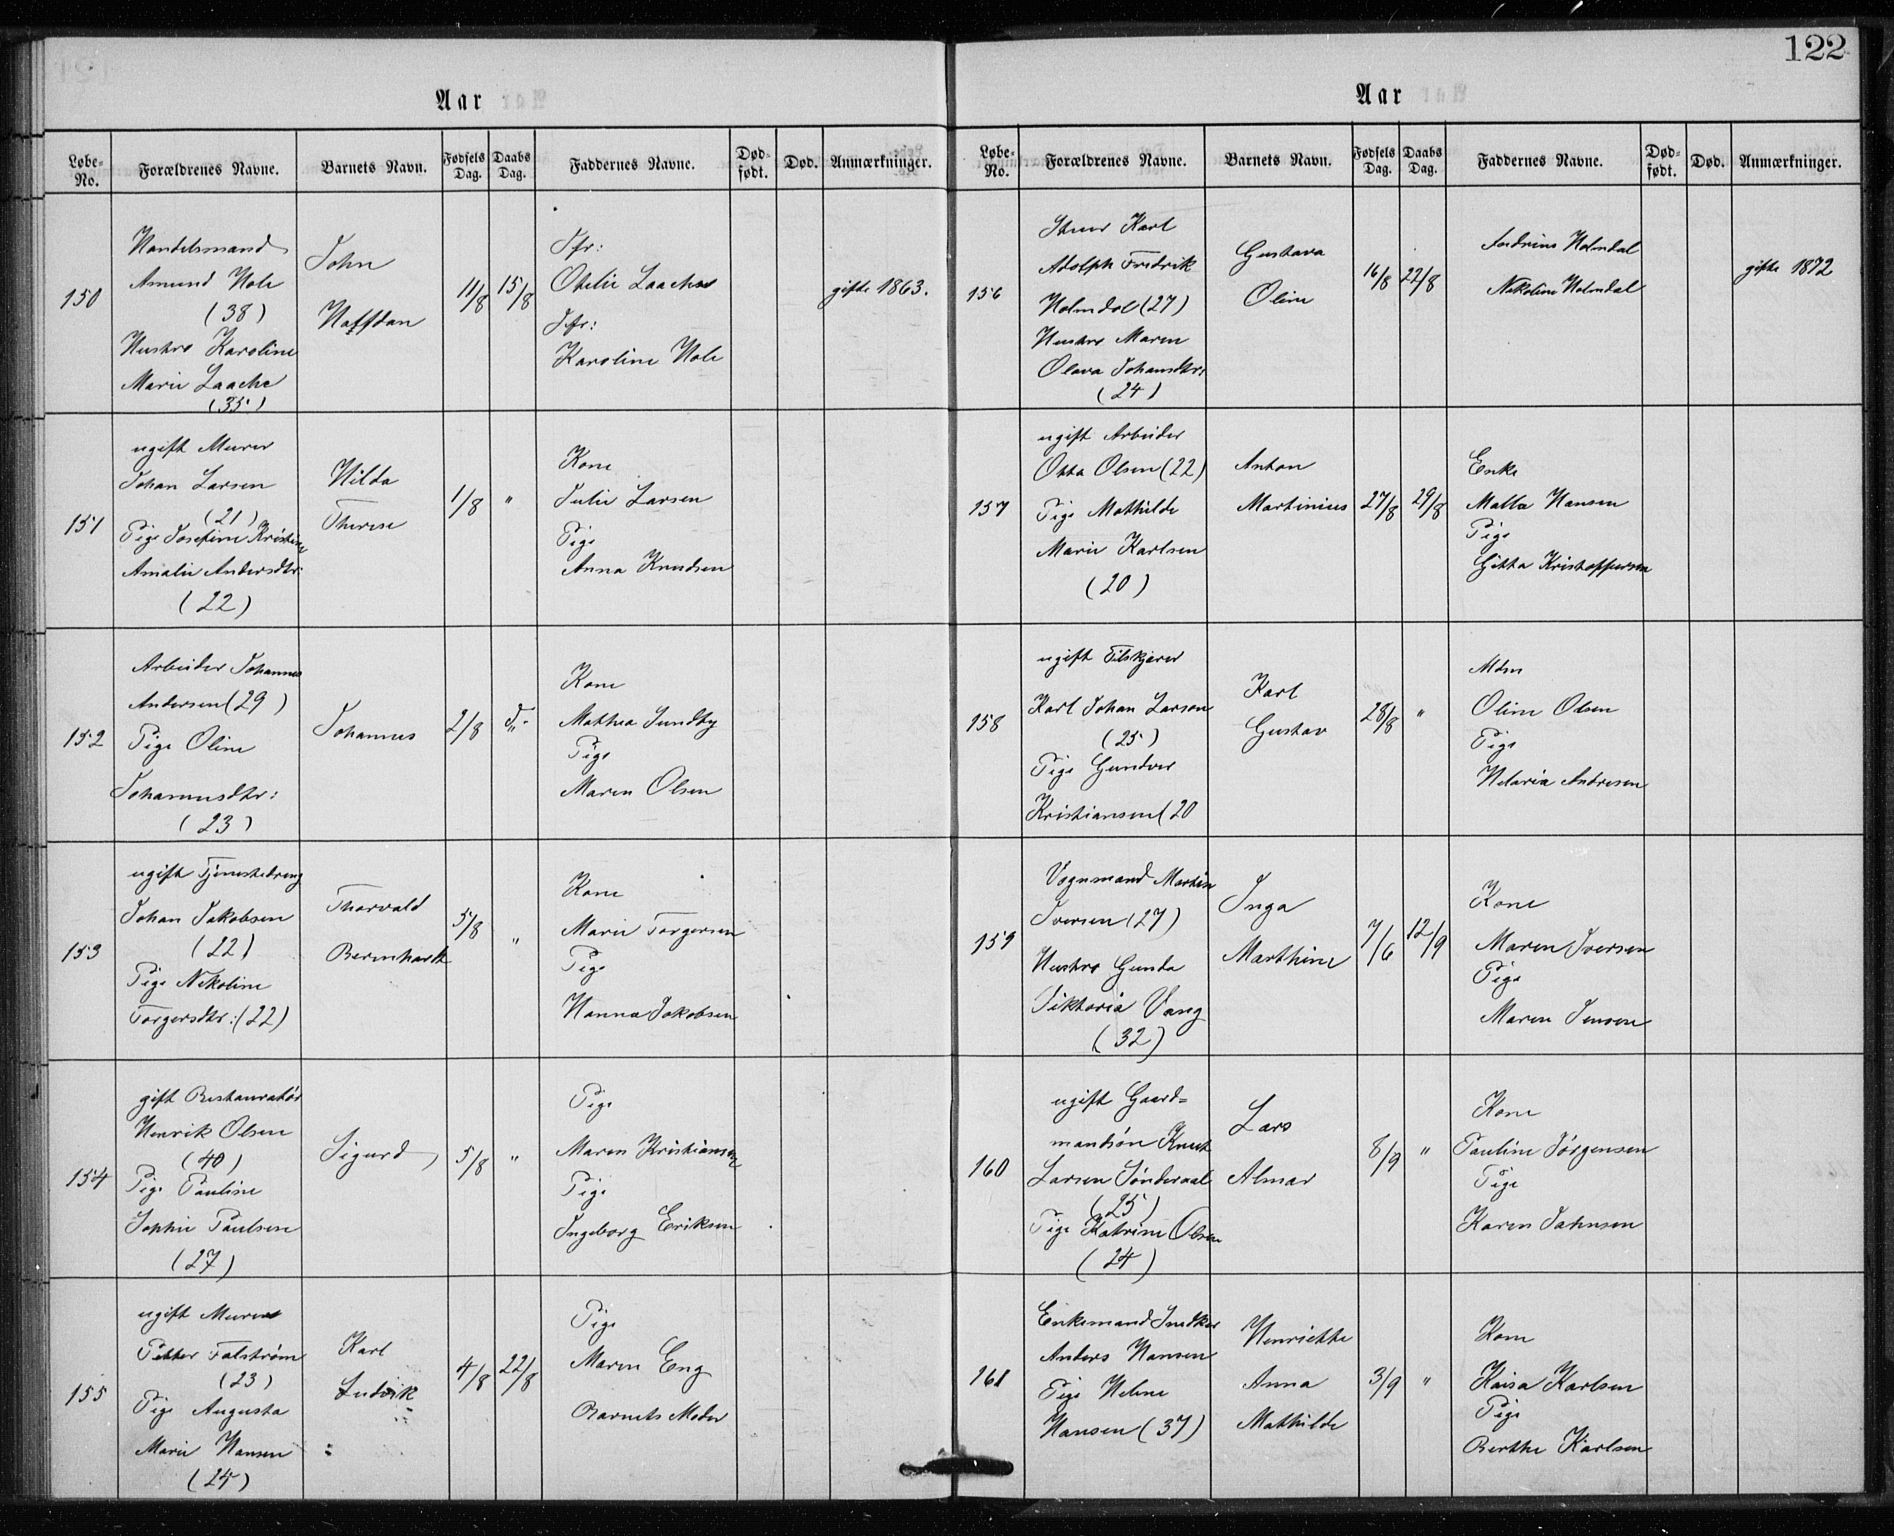 122
Aar
Løbe-No. Forældrenes Navne. Barnets Navn. Fødsels Dag. Daabs Dag. Faddernes Navne. Død-født. Død. Anmærkninger.
150
Handelsmand
Amund Hole
(38)
Hustro Karoline
Marie Laache
(35)
John
Halfdan
11/8
15/8
Jfr:
Otelie Laache
Jfr:
Karoline Hole
gifte 1863.
151
ugift Murer
Johan Larsen
(21)
Pige Josefine Kristine
Amalie Andersdtr:
(22)
Hilda
Therese
1/8
"
Kone
Julie Larsen
Pige
Anna Knudsen
152
Arbeider Johannes
Andersen (29)
Pige Oline
Johannesdtr:
(23)
Johannes
2/8
Kone
Mathea Sundby
Pige
Maren Olsen
153
ugift Tjenestedreng
Johan Jakobsen
(22)
Pige Nikoline
Torgersdtr: (22)
Thorvald
Bernhardt
5/8
"
Kone
Marie Torgersen
Pige
Hanna Jakobsen
154
gift Restauratør
Henrik Olsen
(40)
Pige Pauline
Sophie Paulsen
(27)
Sigurd
5/8
"
Pige
Maren Kristiansen
Pige
Ingeborg Eriksen
155
ugift Murer
Petter Falstrøm
(23)
Pige Augusta
Marie Hansen
(24)
Karl
Ludvik
4/8
22/8
Pige
Maren Eng
Barnets Moder
Aar
Løbe-No. Forældrenes Navne. Barnets Navn. Fødsels Dag. Daabs Dag. Faddernes Navne. Død-født. Død. Anmærkninger.
156
Karl
Adolph Fredrik
Holmdal (27)
Hustro Maren
Olava Johansdtr:
(24)
Gustava
Oline
16/8
22/8
Andrine Holmdal
Nikoline Holmdal
gifte 1872
157
ugift Arbeider
Otto Olsen (22)
Pige Mathilde
Marie Karlsen
(20)
Anton
Martinius
27/8
29/8
Enke
Malla Hansen
Pige
Gitta Kristoffersen
158
ugift Filskjærer
Karl Johan Larsen
(25)
Pige Gundver
Kristiansen (20
Karl
Gustav
28/8
"
Mdm
Oline Olsen
Pige
Helaria Andresen
159
Vognmand Martin
Iversen (27)
Hustro Gunda
Viktoria Vang
(32)
Inga
Marthine
7/6
12/9
Kone
Maren Iversen
Pige
Maren Jensen
160
ugift Gaard=
mandsøn Knut
Larsen Sønderaal
(25)
Pige Katrine Olsen
(24)
Lars
Almar
8/9
"
Kone
Pauline Jørgensen
Pige
Karen Johnsen
161
Enkemand Snedker
Anders Hansen
Pige Helene
Hansen (37)
Henriette
Anna
Mathilde
3/9
"
Kone
Kaisa Karlsen
Pige
Berthe Karlsen